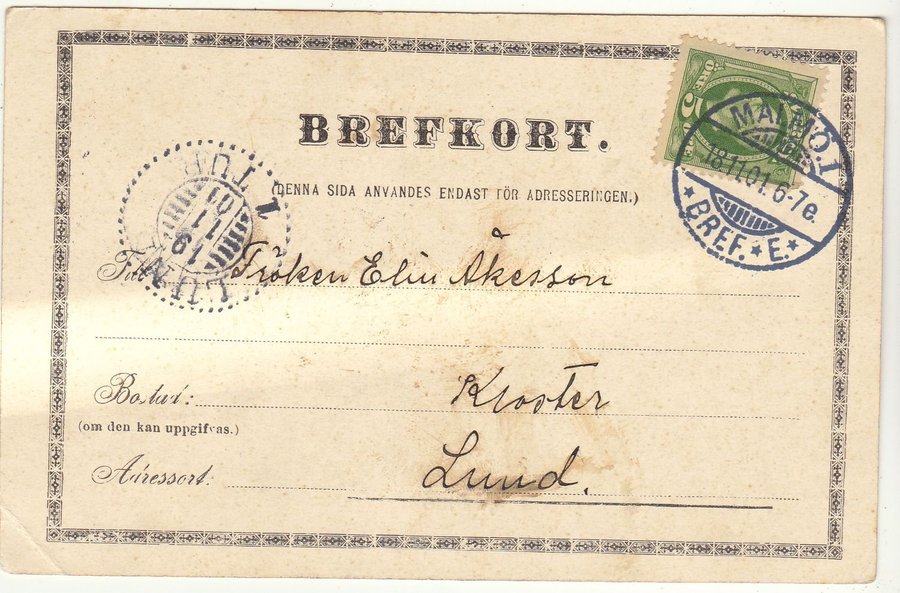 BREFKORT.
(DENNA SIDA ANVANDES ENDAST FÖR ADRESSERINGEN.)
ÖRE 5
MALMÖ.1
18.11.01.6-7e.
*BREF.*E.*
1 TUR
LUND
19
11
01
Till Fröken Elin Åkesson
Bostad: Kloster
(om den kan uppgifvas.)
Adressort: Lund.